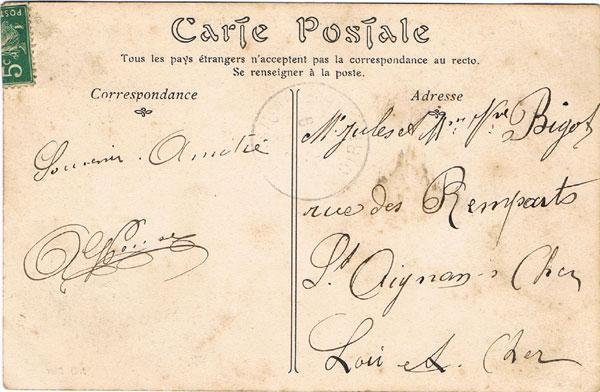 Carte Postale
Tous les pays étrangers n'acceptent pas la correspondance au recto.
Se renseigner à la poste.
Correspondance
Adresse
5c
Souvenir. Amitié
Mr Jules et Mme Vve Bigot
rue des Remparts
St Aignan s Cher
Loir et Cher